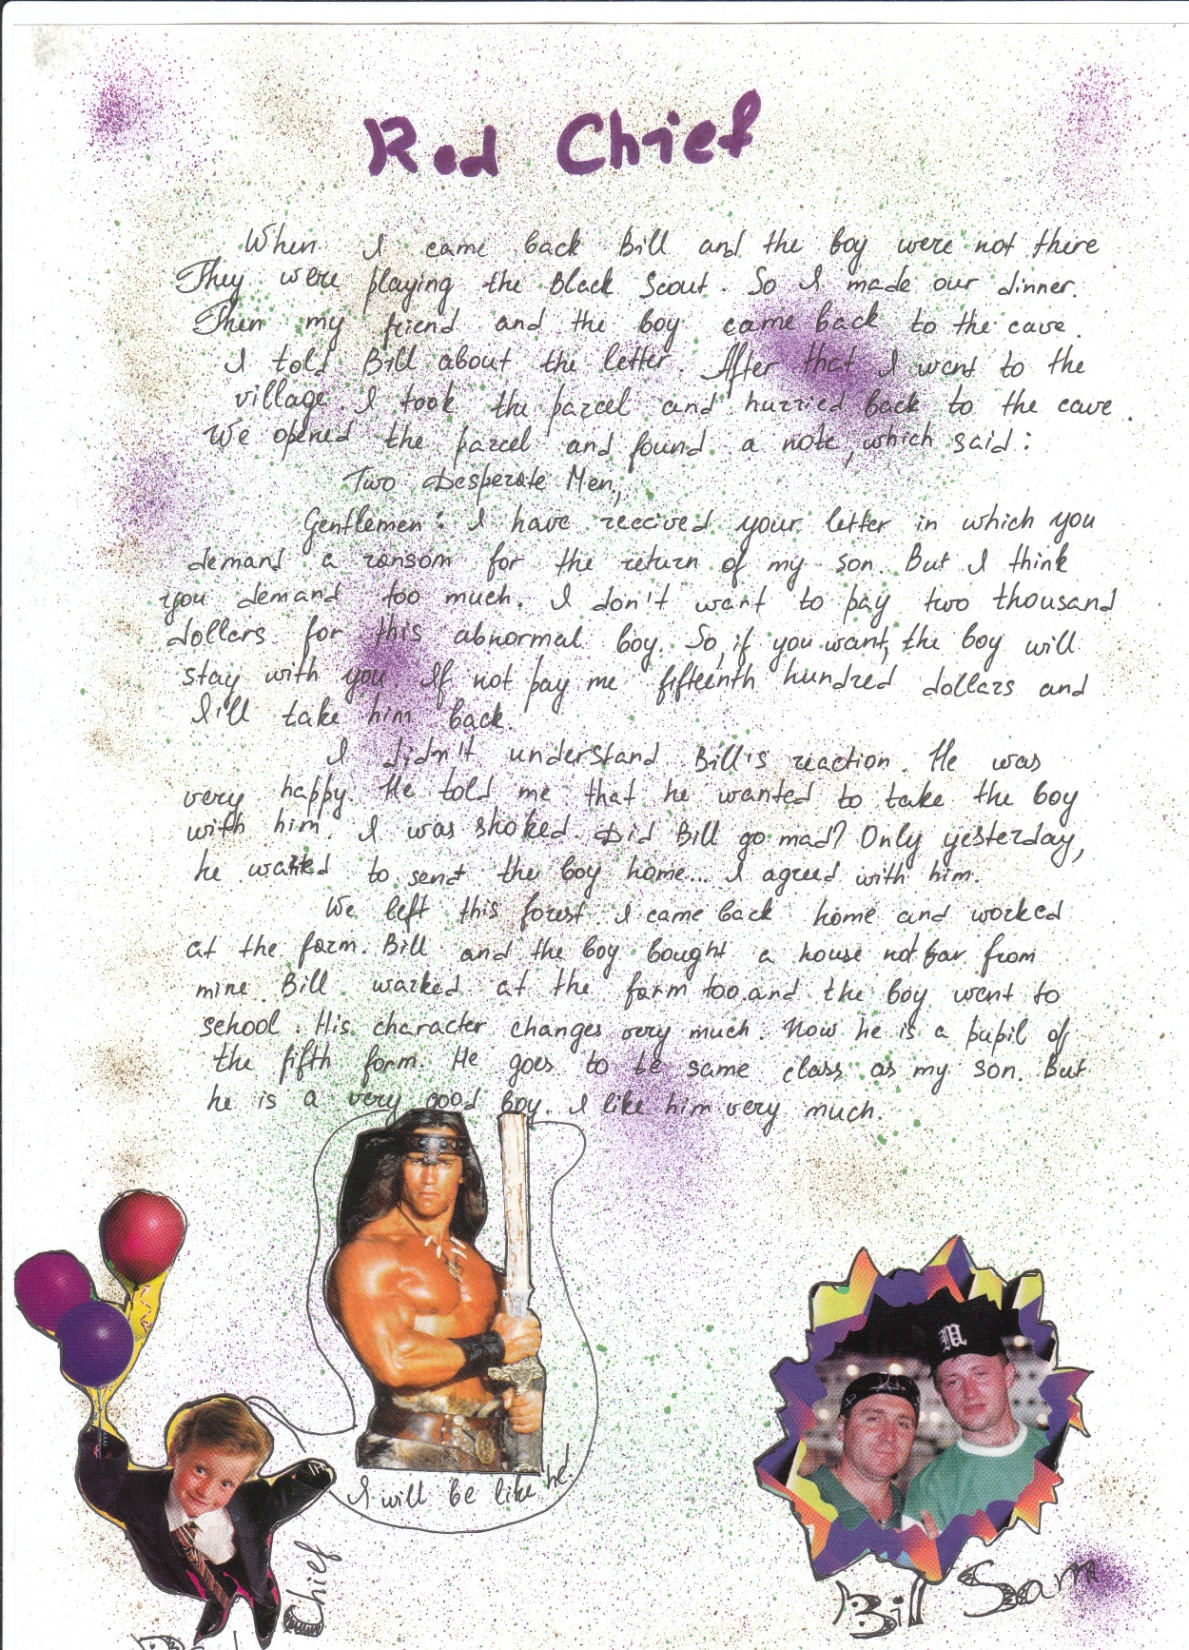 Red Chief
When I came back Bill and the boy were not there
They were playing the Black Scout. So I made our dinner.
Then my friend and the boy came back to the cave.
I told Bill about the letter. After that I went to the
village. I took the parcel and hurried back to the cave.
We opened the parcel and found a note, which said:
Two Desperate Men,
Gentlemen: I have received your letter in which you
demand a ransom for the return of my son. But I think
you demand too much. I don't want to pay two thousand
dollars for this abnormal boy. So, if you want, the boy will
stay with you. If not pay me fifteenth hundred dollars and
I'ill take him back.
I didn't understand Bill's reaction. He was
very happy. He told me that he wanted to take the boy
with him. I was shoked. Did Bill go mad? Only yesterday,
he wanted to send the boy home... I agreed with him.
We left this forest. I came back home and worked
at the farm. Bill and the boy bought a house not far from
mine. Bill warked at the farm too and the boy went to
school. His character changes very much. Now he is a pupil of
the fifth form. He goes to te same class as my son. But
he is a very good boy. I like him very much.
M
I will be like he.
Chief
Bill Sam